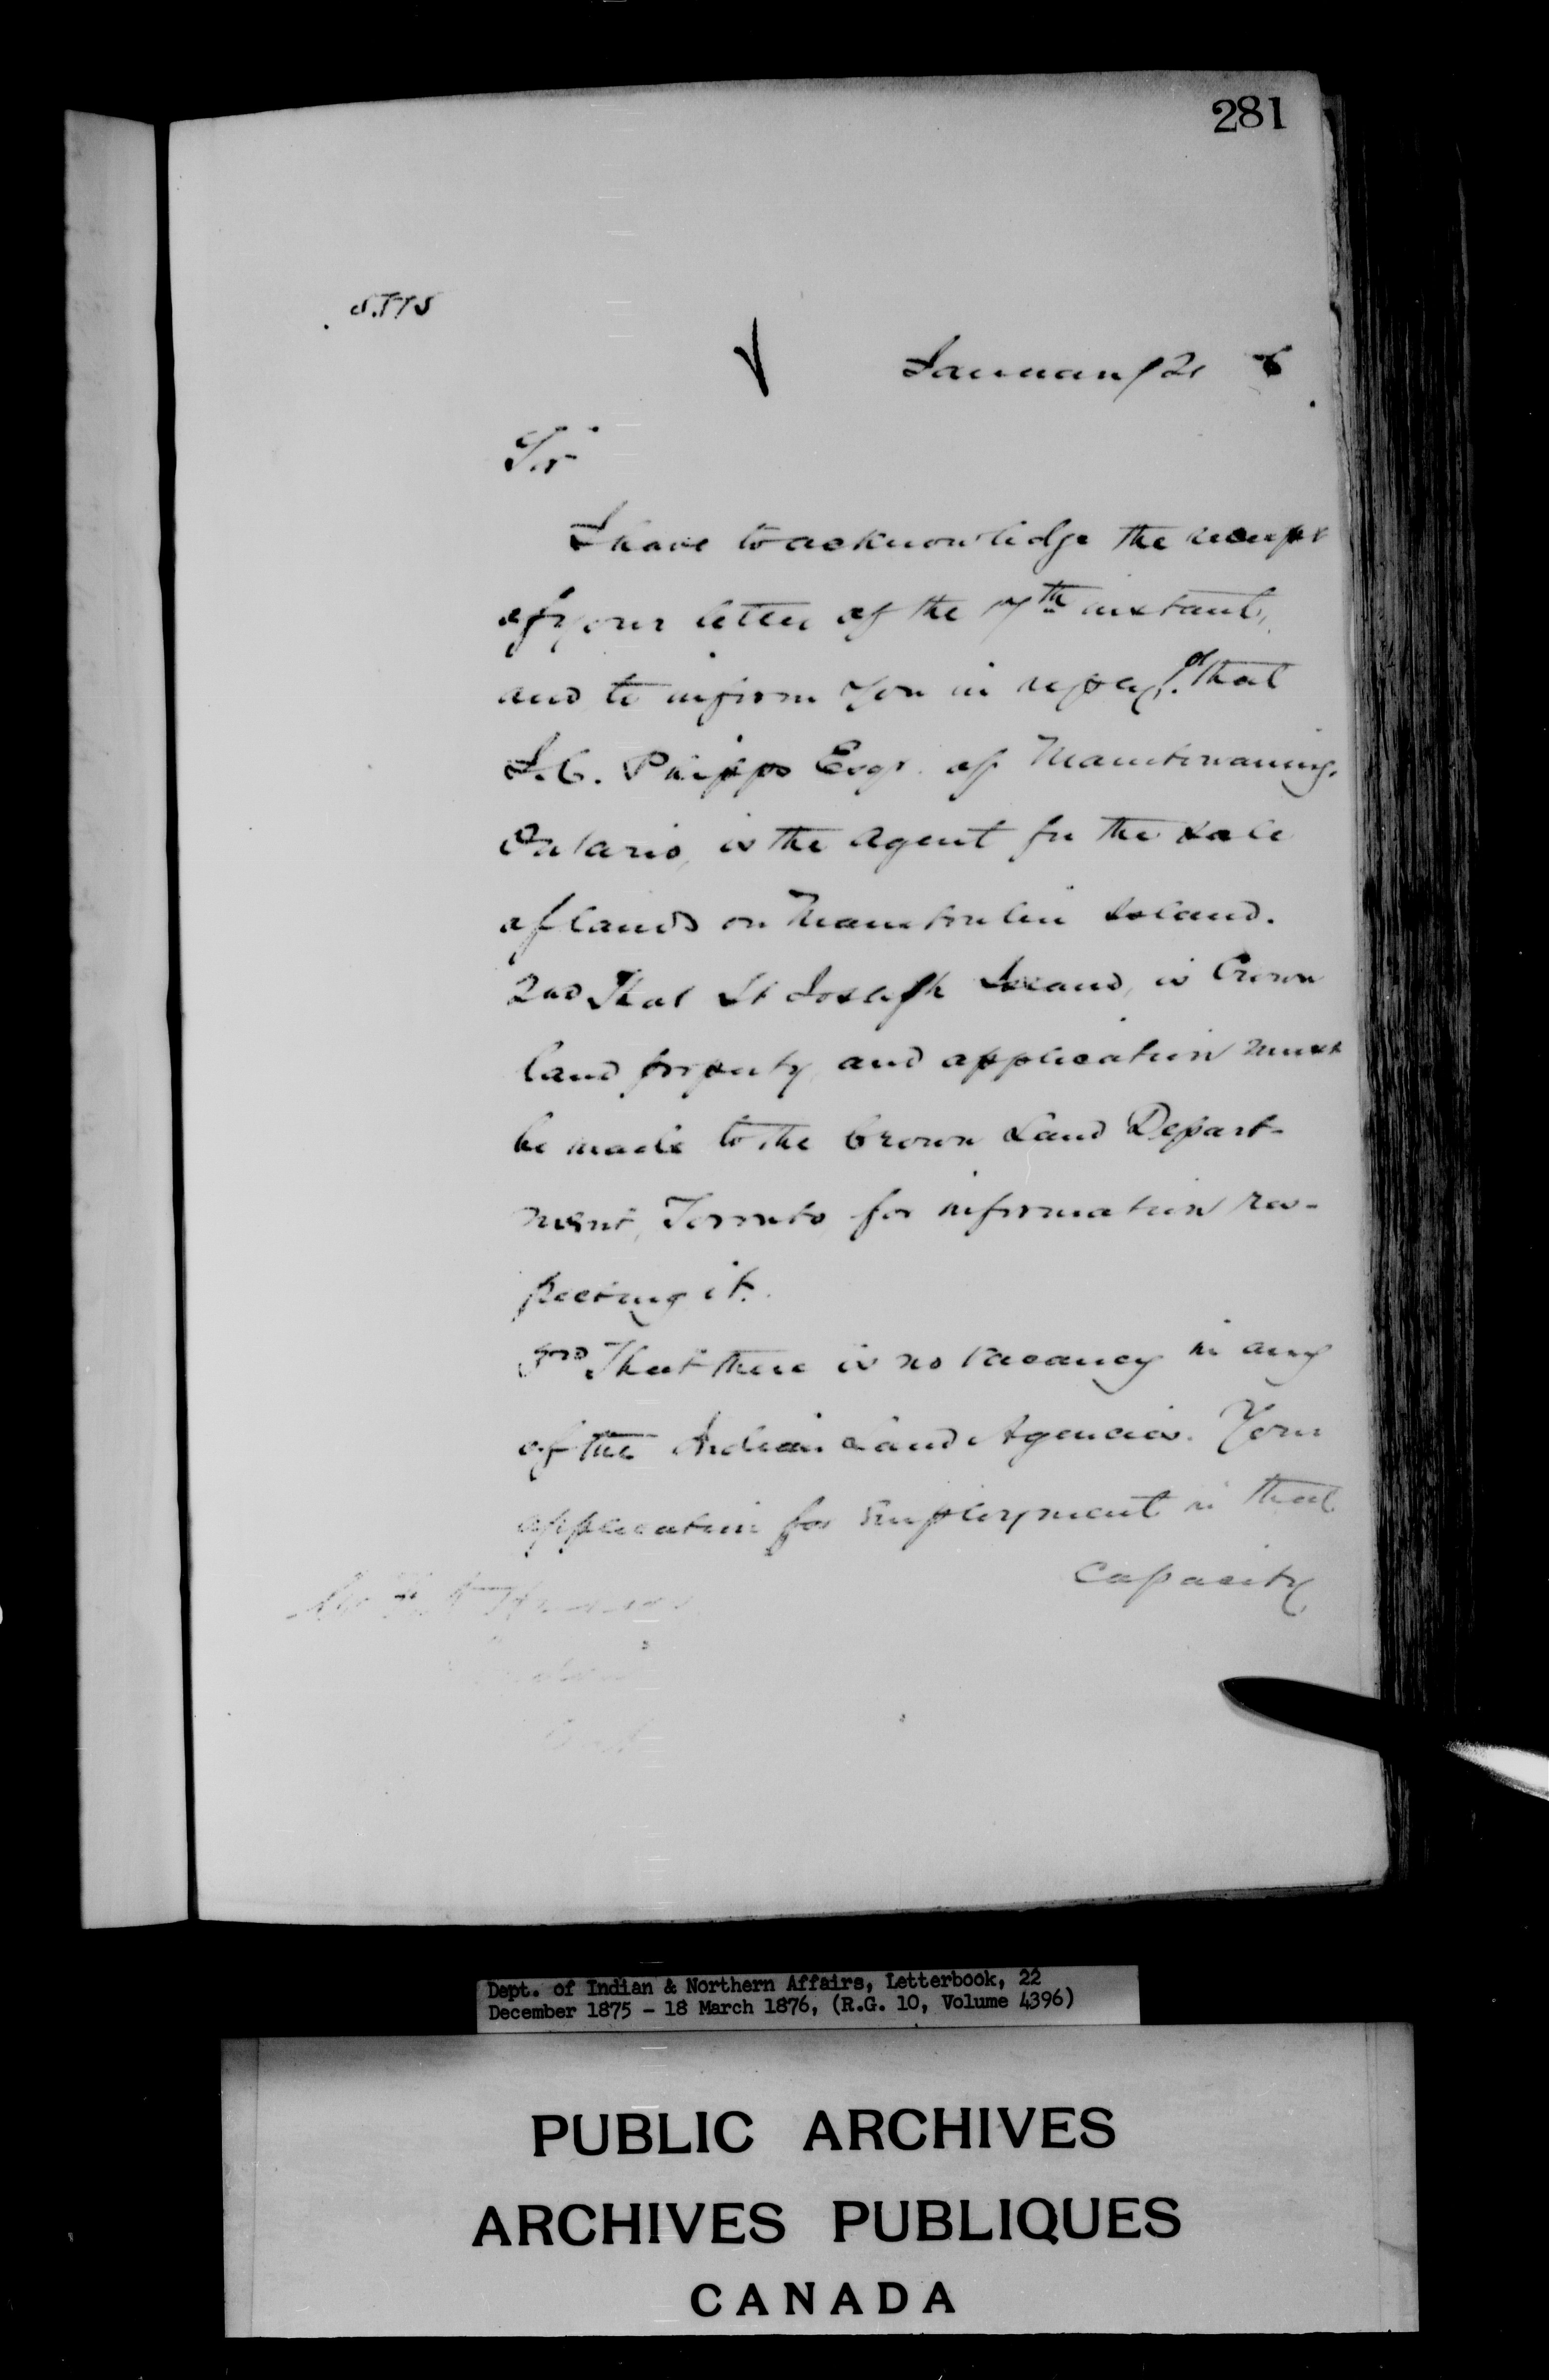 281
January 21 6
Sir
I have to acknowledge the receipt
of your letter of the 17th instant,
and to inform you in reply, that
J.C. Phipps Esqr. of Manitowaning,
Ontario, is the Agent for the sale
of lands on Manitoulin Island.
2nd That St Joseph Island, is Crown
land property and application must
be made to the Crown Land Depart-
ment, Toronto, for information res-
pecting it.
3rd That there is no vacancy in any
of the Indian Land Agencies. Your
application for employment in that
capacity
Dept. of Indian & Northern Affairs, Letterbook, 22
December 1875 - 18 March 1876, (R.G. 10, Volume 4396)
PUBLIC ARCHIVES
ARCHIVES PUBLIQUES
CANADA